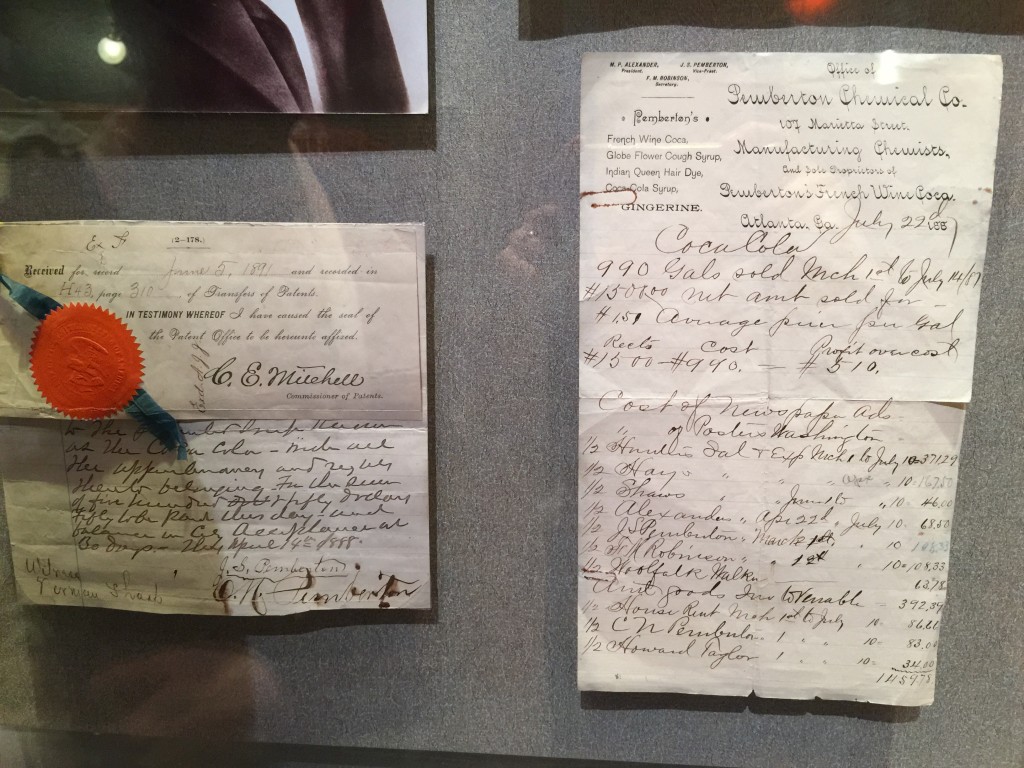 Ex F
(2—178.)
Received for record June 5, 1891 and recorded in
H 43, page 310 of Transfers of Patents.
IN TESTIMONY WHEREOF I have caused the seal of
the Patent Office to be hereunto affixed.
C. E. Mitchell
Commissioner of Patents.
to the
as the Coca Cola
the appurtenancy and
thereto belonging. For the sum
of five hundred & fifty dollars
fifty to be paid this day and
balance in
60 days - This April 14th 1888.
J. S. Pemberton
C. N. Pemberton
Witness
M. P. ALEXANDER,
President.
J. S. PEMBERTON,
Vice-Prest.
F. M. ROBINSON,
Secretary.
Pemberton's
French Wine Coca,
Globe Flower Cough Syrup,
Indian Queen Hair Dye,
Coca-Cola Syrup,
GINGERINE.
Office of
Pemberton Chemical Co.
107 Marietta Street.
Manufacturing Chemists,
And Sole Proprietors of
Pemberton's French Wine Coca.
Atlanta, Ga. July 22 1887
Coca Cola
990 Gals sold Mch 1st to July 14/87
$1500.00 net amt sold for
$1.51 Average price per Gal
Reets Cost Profit over cost
$1500 - $990. — $510.
Cost of Newspaper Ads
" of Posters Washington
1/2 Sal & Exp Mch 1 to July 10 - 371.29
1/2 Hayo " " " 10 - 167.50
1/2 Shaws " June 1 to " 10 - 46.00
1/2 Alexanders " Apl 22th " July 10 - 68.50
1/2 J S Pemberton " March 1st " 10
1/2 F. M Robinson " 1st " 10 - 108.33
1/2 Woolfalk Walker 63.78
Amt goods Inv to Venable - 392.39
1/2 House Rent Mch 1st to July 10 - 86.66
1/2 C N Pemberton 1 " " 10 - 83.00
1/2 Howard Taylor 1 " " 10 - 34.00
1459.78